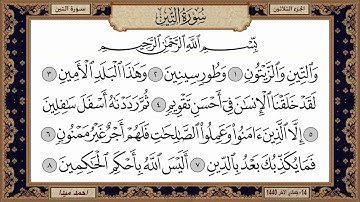 الجزء الثلاثون
سورة التين
سورة التين
بِسْمِ اللَّهِ الرَّحْمَٰنِ الرَّحِيمِ
وَالتِّينِ وَالزَّيْتُونِ ١ وَطُورِ سِينِينَ ٢ وَهَٰذَا الْبَلَدِ الْأَمِينِ ٣
لَقَدْ خَلَقْنَا الْإِنسَٰنَ فِي أَحْسَنِ تَقْوِيمٍ ٤ ثُمَّ رَدَدْنَٰهُ أَسْفَلَ سَٰفِلِينَ
٥ إِلَّا الَّذِينَ ءَامَنُوا وَعَمِلُوا الصَّٰلِحَٰتِ فَلَهُمْ أَجْرٌ غَيْرُ مَمْنُونٍ ٦
فَمَا يُكَذِّبُكَ بَعْدُ بِالدِّينِ ٧ أَلَيْسَ اللَّهُ بِأَحْكَمِ الْحَٰكِمِينَ ٨
14- 1440
احمد